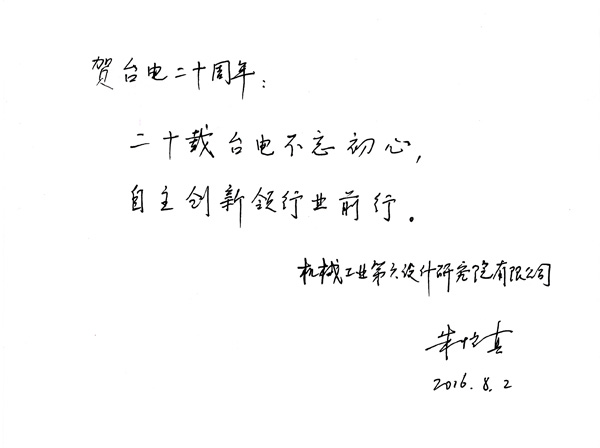 贺台电二十周年：
二十载台电不忘初心，
自主创新领行业前行。
机械工业第六设计研究院有限公司
朱恺真
2016.8.2